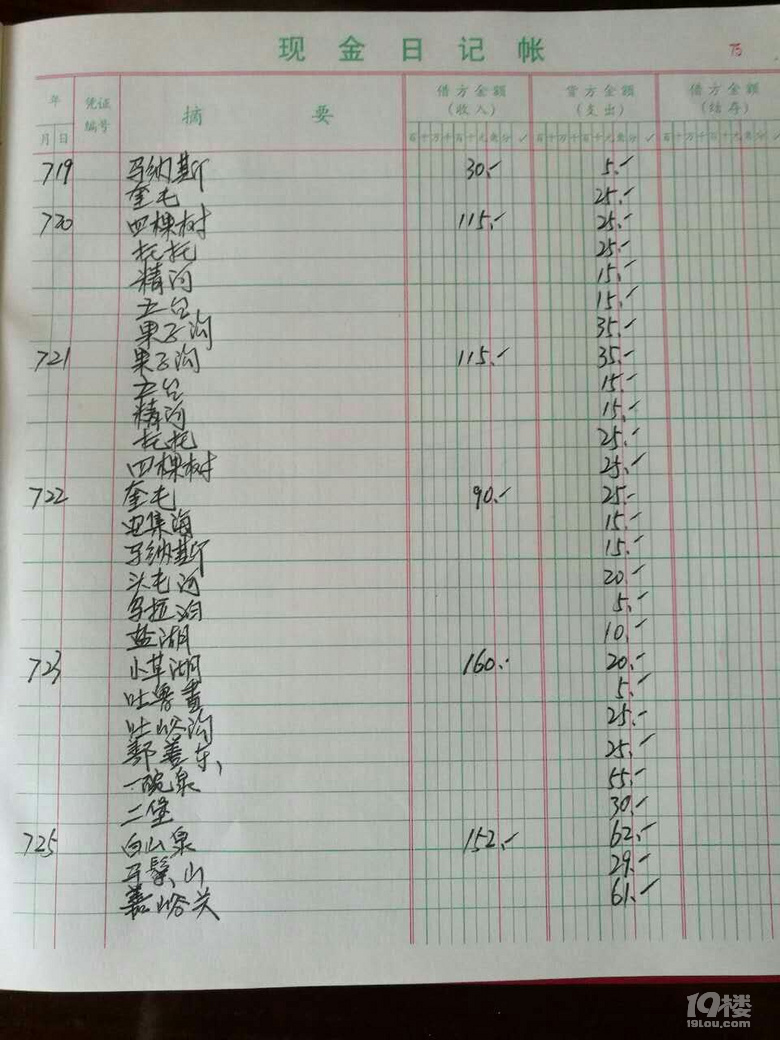 现金日记帐
75
年 凭证编号 摘要 借方金额(收入) 贷方金额(支出) 借方金额(结存)
月 日 百十万千百十元角分√ 百十万千百十元角分√ 百十万千百十元角分√
7 19 马纳斯 30.- 5.-
奎屯 25.-
7 20 四棵树 115.- 25.-
托托 25.-
精河 15.-
五台 15.-
果子沟 35.-
7 21 果子沟 115.- 35.-
五台 15.-
精河 15.-
托托 25.-
四棵树 25.-
7 22 奎屯 90.- 25.-
安集海 15.-
马纳斯 15.-
头屯河 20.-
乌拉泊 5.-
盐湖 10.-
7 23 小草湖 160.- 20.-
吐鲁番 5.-
吐峪沟 25.-
鄯善东、 25.-
一碗泉 55.-
二堡 30.-
7 25 白山泉 152.- 62.-
马鬃山 29.-
嘉峪关 61.-
19楼
19lou.com